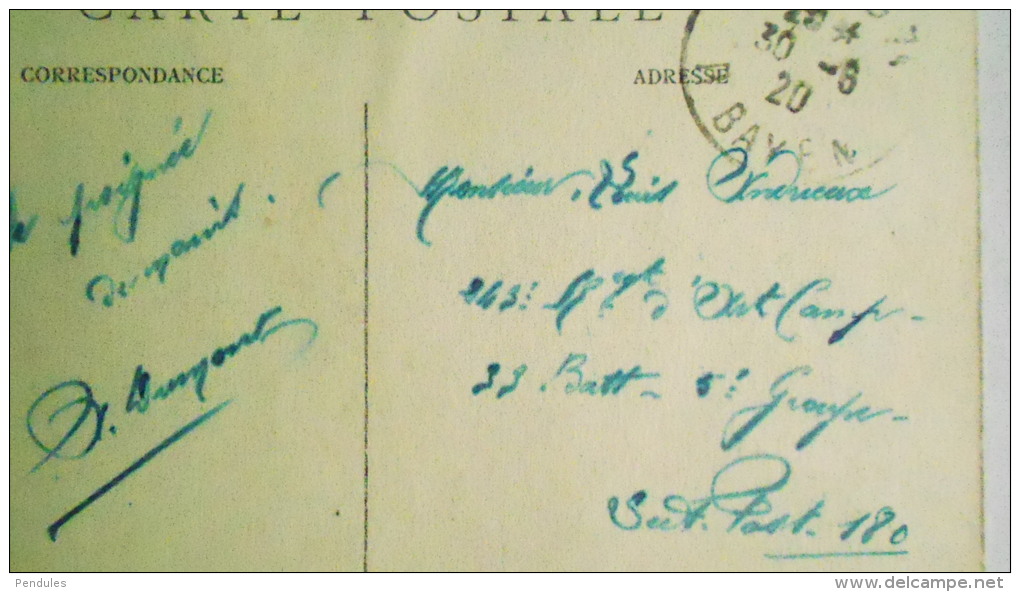 CARTE POSTALE
CORRESPONDANCE
ADRESSE
30 -6
20
BAYEN
poignée
de main.
Monsieur Louis Andrieux
243e Rgt d'Art Camp -
33 Batt - 5e Groupe -
Sect. Post. 180
Pendules
www.delcampe.net